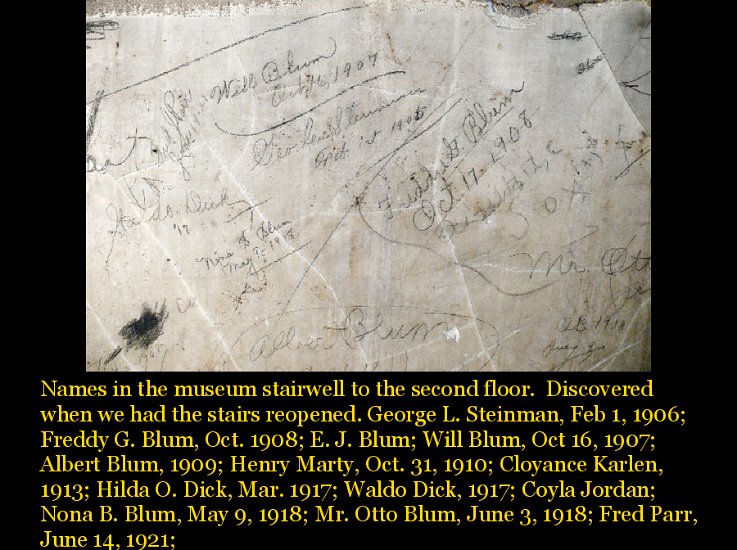 Will Blum
Oct 16, 1907
Geo.
1st
Freddie G. Blum
Oct 17 - 1908
Waldo. Dick
'17
Nona B. Blum
May 9 - 1918
Mr. Otto
Albert Blum
1918
Names in the museum stairwell to the second floor. Discovered
when we had the stairs reopened. George L. Steinman, Feb 1, 1906;
Freddy G. Blum, Oct. 1908; E. J. Blum; Will Blum, Oct 16, 1907;
Albert Blum, 1909; Henry Marty, Oct. 31, 1910; Cloyance Karlen,
1913; Hilda O. Dick, Mar. 1917; Waldo Dick, 1917; Coyla Jordan;
Nona B. Blum, May 9, 1918; Mr. Otto Blum, June 3, 1918; Fred Parr,
June 14, 1921;